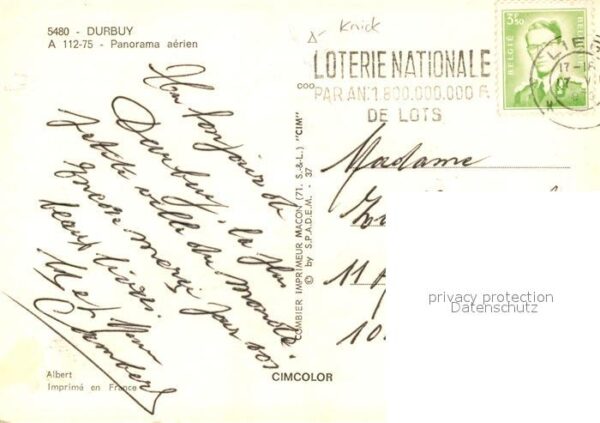 5480 - DURBUY
A 112-75 - Panorama aérien
Knick
LOTERIE NATIONALE
PAR AN: 1.800.000.000 F.
DE LOTS
3F50
BELGIE
Un bonjour de
Durbuy, la plus
petite ville du monde.
Encore merci pour vos
beaux
Mr et Mme
COMBIER IMPRIMEUR MACON (71. S.-&-L.) "CIM"
© by S.P.A.D.E.M. - 37
Madame
11
10
privacy protection
Datenschutz
Albert
Imprimé en France
CIMCOLOR